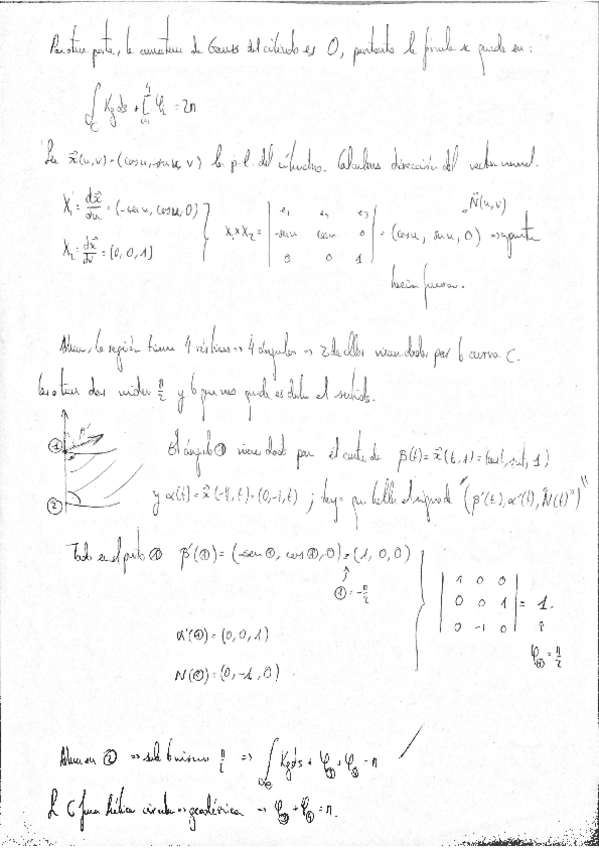 Por otra parte, la curvatura de Gauss del cilindro es 0, por tanto la fórmula se queda en:
∫_C Kg ds + Σ_{i=1}^{4} φ_i = 2π
Sea x⃗(u,v) = (cos u, sen u, v) la p.l. del cilindro. Calculamos dirección del vector normal.
X₁ = dx⃗/du = (-sen u, cos u, 0)
X₂ = dx⃗/dv = (0, 0, 1)
X₁ × X₂ = | e₁ e₂ e₃ | = (cos u, sen u, 0) ⇒ apunta
| -sen u cos u 0 |
| 0 0 1 |
"N⃗(u,v)
hacia fuera.
Ahora, la región tiene 4 vértices ⇒ 4 ángulos ⇒ 2 de ellos vienen dados por la curva C.
Los otros dos miden π/2 y lo que nos queda es darle el sentido.
① β'
②
El ángulo ① viene dado por el corte de β(t) = x⃗(t,1) = (cos t, sen t, 1)
y α(t) = x⃗(-π/2, t) = (0,-1,t) ; hay que hallar el signo de "(β'(t), α'(t), N⃗(t))"
Todo en el punto ① β'(①) = (-sen ①, cos ①, 0) = (1, 0, 0)
① = -π/2
α'(①) = (0, 0, 1)
N(①) = (0, -1, 0)
| 1 0 0 |
| 0 0 1 | = 1.
| 0 -1 0 |
φ_① = π/2
Ahora en ② ⇒ sale lo mismo π/2 ⇒ ∫ Kg ds + φ_③ + φ_④ = π
Si C fuera hélice circular ⇒ geodésica ⇒ φ_③ + φ_④ = π.